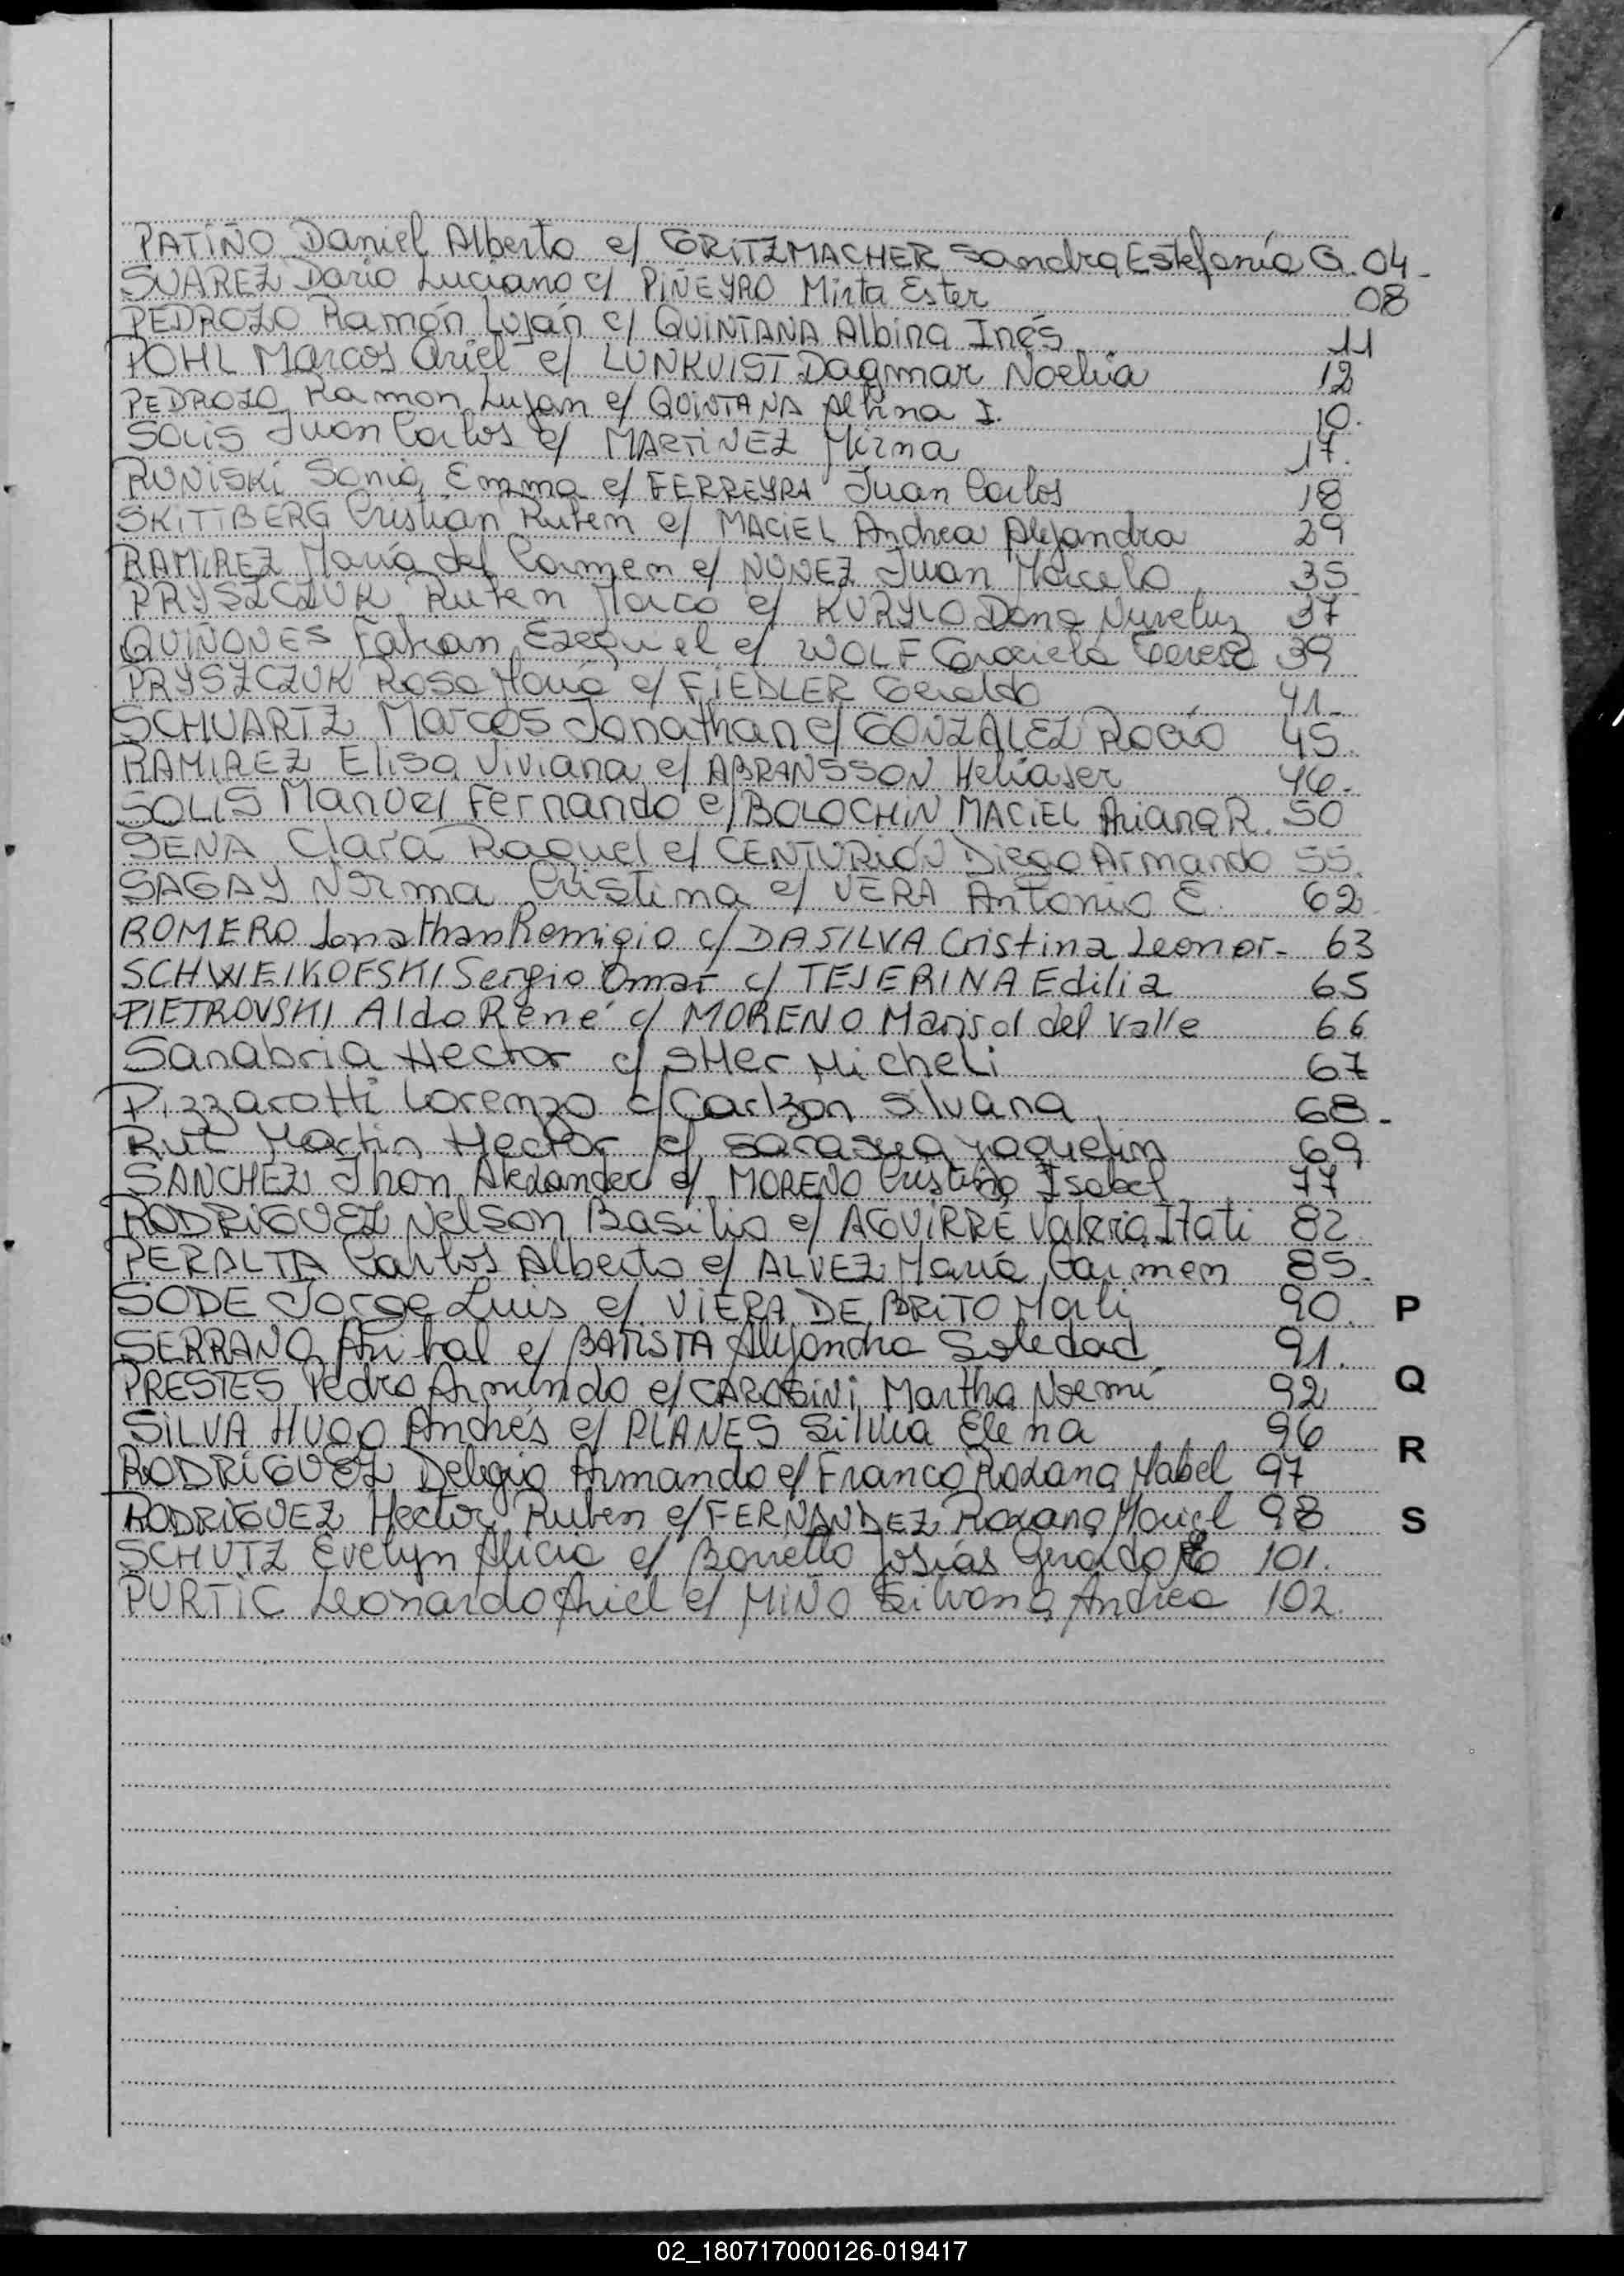 PATIÑO Daniel Alberto c/ GRITZMACHER Sandra Estefanía G. 04.
SUAREZ Dario Luciano c/ PIÑEYRO Mirta Ester 08
PEDROZO Ramón Luján c/ QUINTANA Albina Inés 11
POHL Marcos Ariel c/ LUNKVIST Dagmar Noelia 12
PEDROZO Ramon Lujan c/ QUINTANA Albina I. 10.
SOLIS Juan Carlos c/ MARTINEZ Mirna 17.
RUNISKI Sonia Emma c/ FERREYRA Juan Carlos 18
SKITTBERG Cristian Ruben c/ MACIEL Andrea Alejandra 29
RAMIREZ María del Carmen c/ NUNEZ Juan Marcelo 35
PRYSZCZUK Ruben Marco c/ KURYLO Dana 37
QUIÑONES Fabian Ezequiel c/ WOLF Graciela Teresa 39
PRYSZCZUK Rosa María c/ FIEDLER Geraldo 41.
SCHUARTZ Marcos Jonathan c/ GONZALEZ Rocío 45.
RAMIREZ Elisa Viviana c/ ABRANSSON Heliaser 46.
SOLIS Manuel Fernando c/ BOLOCHIN MACIEL Ariana R. 50
SENA Clara Raquel c/ CENTURIÓN Diego Armando 55.
SAGAY Norma Cristina c/ VERA Antonio E. 62
ROMERO Jonathan Remigio c/ DASILVA Cristina Leonor- 63
SCHWEIKOFSKI Sergio Omar c/ TEJERINA Edilia 65
PIETROVSKI Aldo René c/ MORENO Marisol del Valle 66
Sanabria Hector c/ Micheli 67
Pizzarotti Lorenzo c/ Carlzon Silvana 68.
Rut Martin Hector c/ Sarasua Yaquelin 69
SANCHEZ Jhon Alexander c/ MORENO Cristina Isabel 77
RODRIGUEZ Nelson Basilio c/ AGUIRRE Valeria Itati 82
PERALTA Carlos Alberto c/ ALVEZ María Carmen 85.
SODE Jorge Luis c/ VIERA DE BRITO Marli 90. P
SERRANO Anibal c/ BATISTA Alejandra Soledad 91.
PRESTES Pedro Armindo c/ CAROSINI Martha Noemí 92 Q
SILVA HUGO Andrés c/ PLANES Silvia Elena 96
RODRIGUEZ Delgio Armando c/ Franco Roxana Mabel 97 R
RODRIGUEZ Hector Ruben c/ FERNANDEZ Roxana Mariel 98 S
SCHUTZ Evelyn Alicia c/ Borretto Josías 101.
PURTIC Leonardo Ariel c/ MIÑO Silvana Andrea 102.
02_180717000126-019417